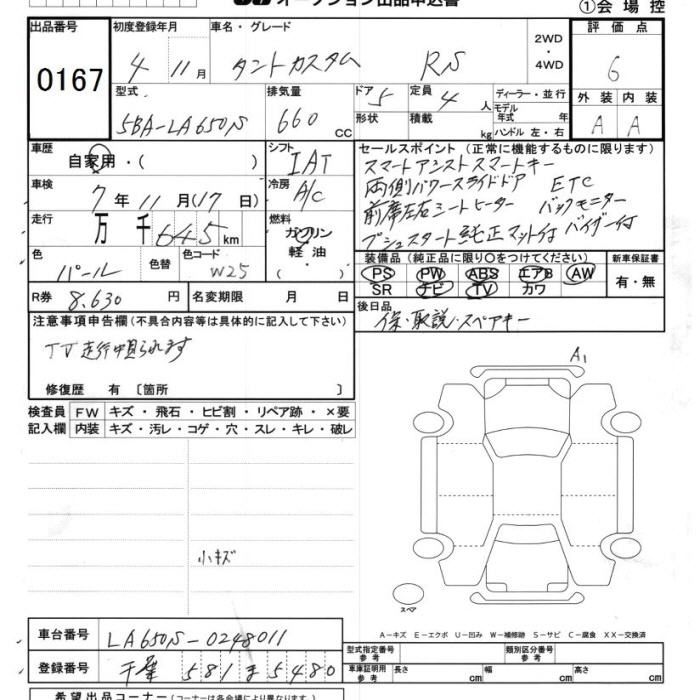 オークション出品申込書
①会場控
出品番号 初度登録年月 車名・グレード 2WD ・ 4WD 評価点
0167 4年 11月 タントカスタム RS 6
型式 排気量 ドア 5 定員 4人 ディーラー・並行 外装 内装
5BA-LA650S 660 CC 形状 積載 kg モデル年式 年 ハンドル 左・右 A A
車歴 自家用・( ) シフト IAT セールスポイント (正常に機能するものに限ります)
スマートアシスト スマートキー
車検 7年 11月 (17日) 冷房 A/C 両側パワースライドドア ETC
走行 万 千 645 km 燃料 ガソリン 軽油・ 前席左右シートヒーター バックモニター
プッシュスタート 純正マット付 バイザー付
色 パール 色替 色コード W25 装備品 (純正品に限り○をつけてください) 新車保証書
PS PW ABS エアB AW 有・無
SR ナビ TV カワ
R券 8,630円 名変期限 月 日 後日品
保・取説・スペアキー
注意事項申告欄 (不具合内容等は具体的に記入して下さい)
TV走行中見られます
A1
修復歴 有 〔箇所 〕
検査員 FW キズ・飛石・ヒビ割・リペア跡・×要
記入欄 内装 キズ・汚レ・コゲ・穴・スレ・キレ・破レ
小キズ
スペア
A−キズ E−エクボ U−凹み W−補修跡 S−サビ C−腐食 XX−交換済
車台番号 LA650S-0248011 型式指定番号 参考 類別区分番号 参考
登録番号 千葉 581 ま 5480 車庫証明用 参考 長さ cm 幅 cm 高さ cm
希望出品コーナー (コーナーは各会場により異なります)